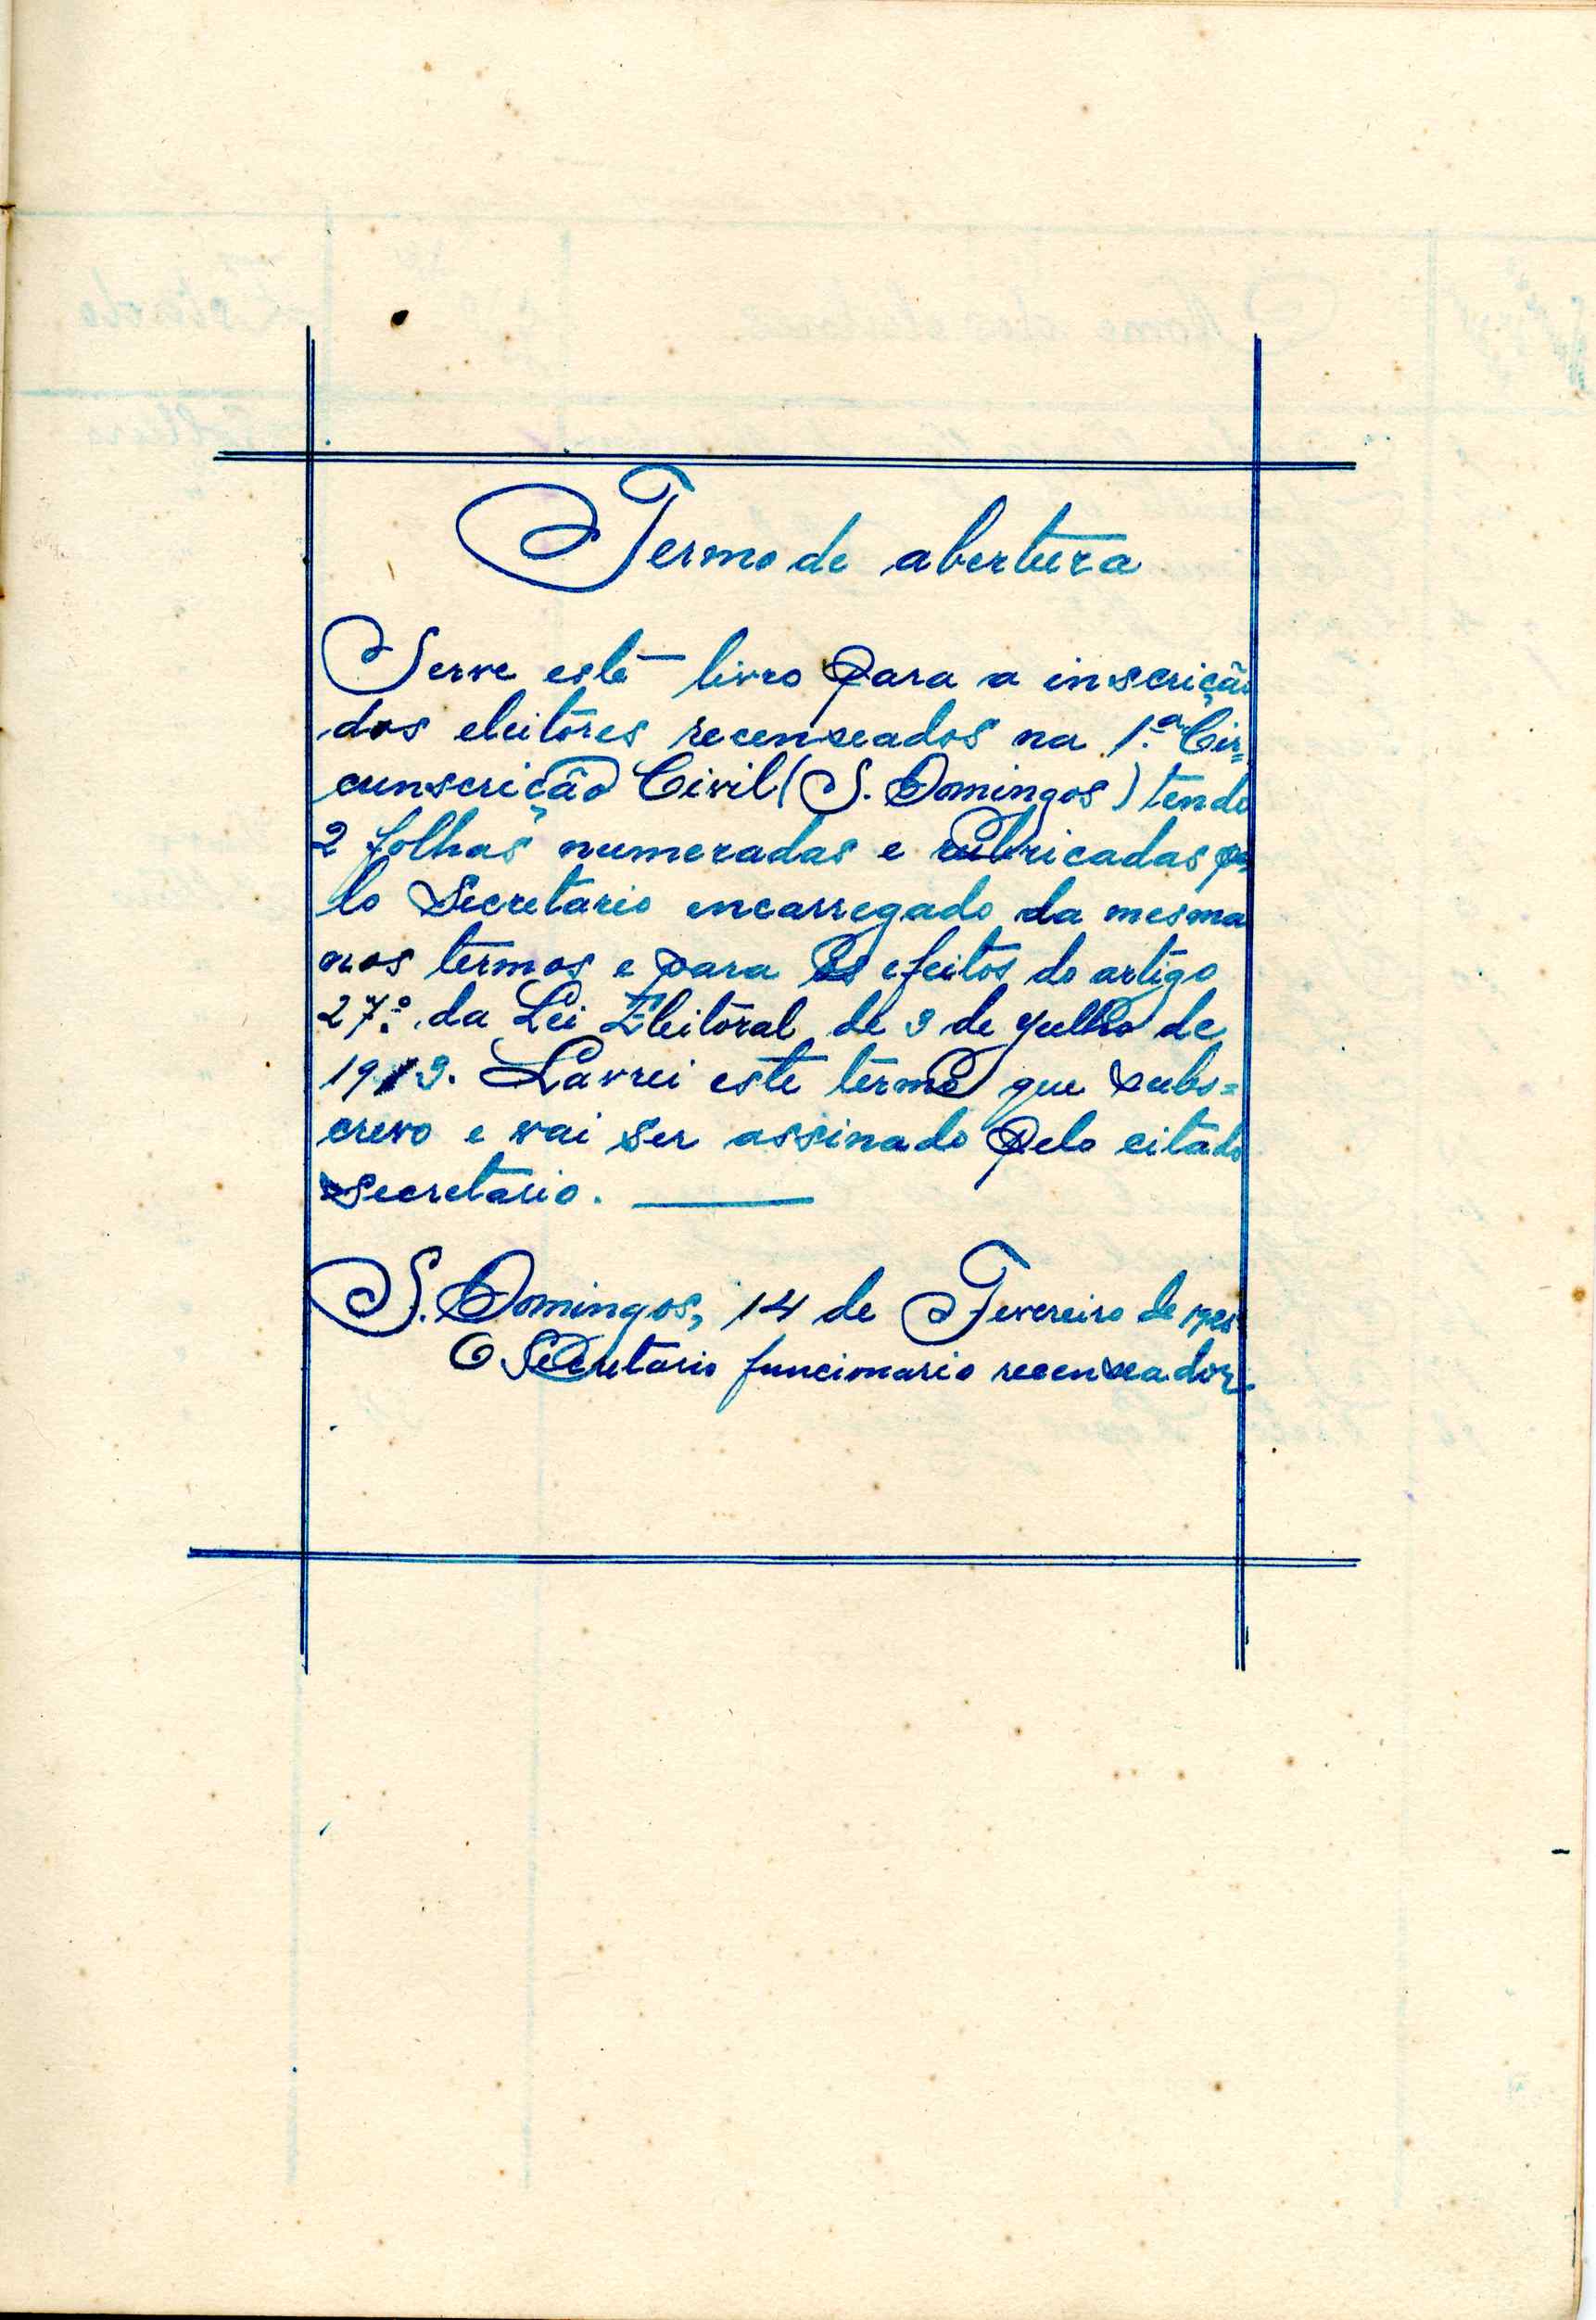 Termo de abertura
Serve este livro para a inscrição
dos eleitôres recenseados na 1.ª Cir=
cunscrição Civil (S. Domingos) tendo
2 folhas numeradas e rubricadas pe
lo Secretario encarregado da mesma
nos termos e para os efeitos do artigo
27.º da Lei Eleitoral de 3 de Julho de
1913. Lavrei este têrmo que subs=
crevo e vai ser assinado pelo citado
secretario.
S. Domingos, 14 de Fevereiro de
O Secretario funcionario recenseador